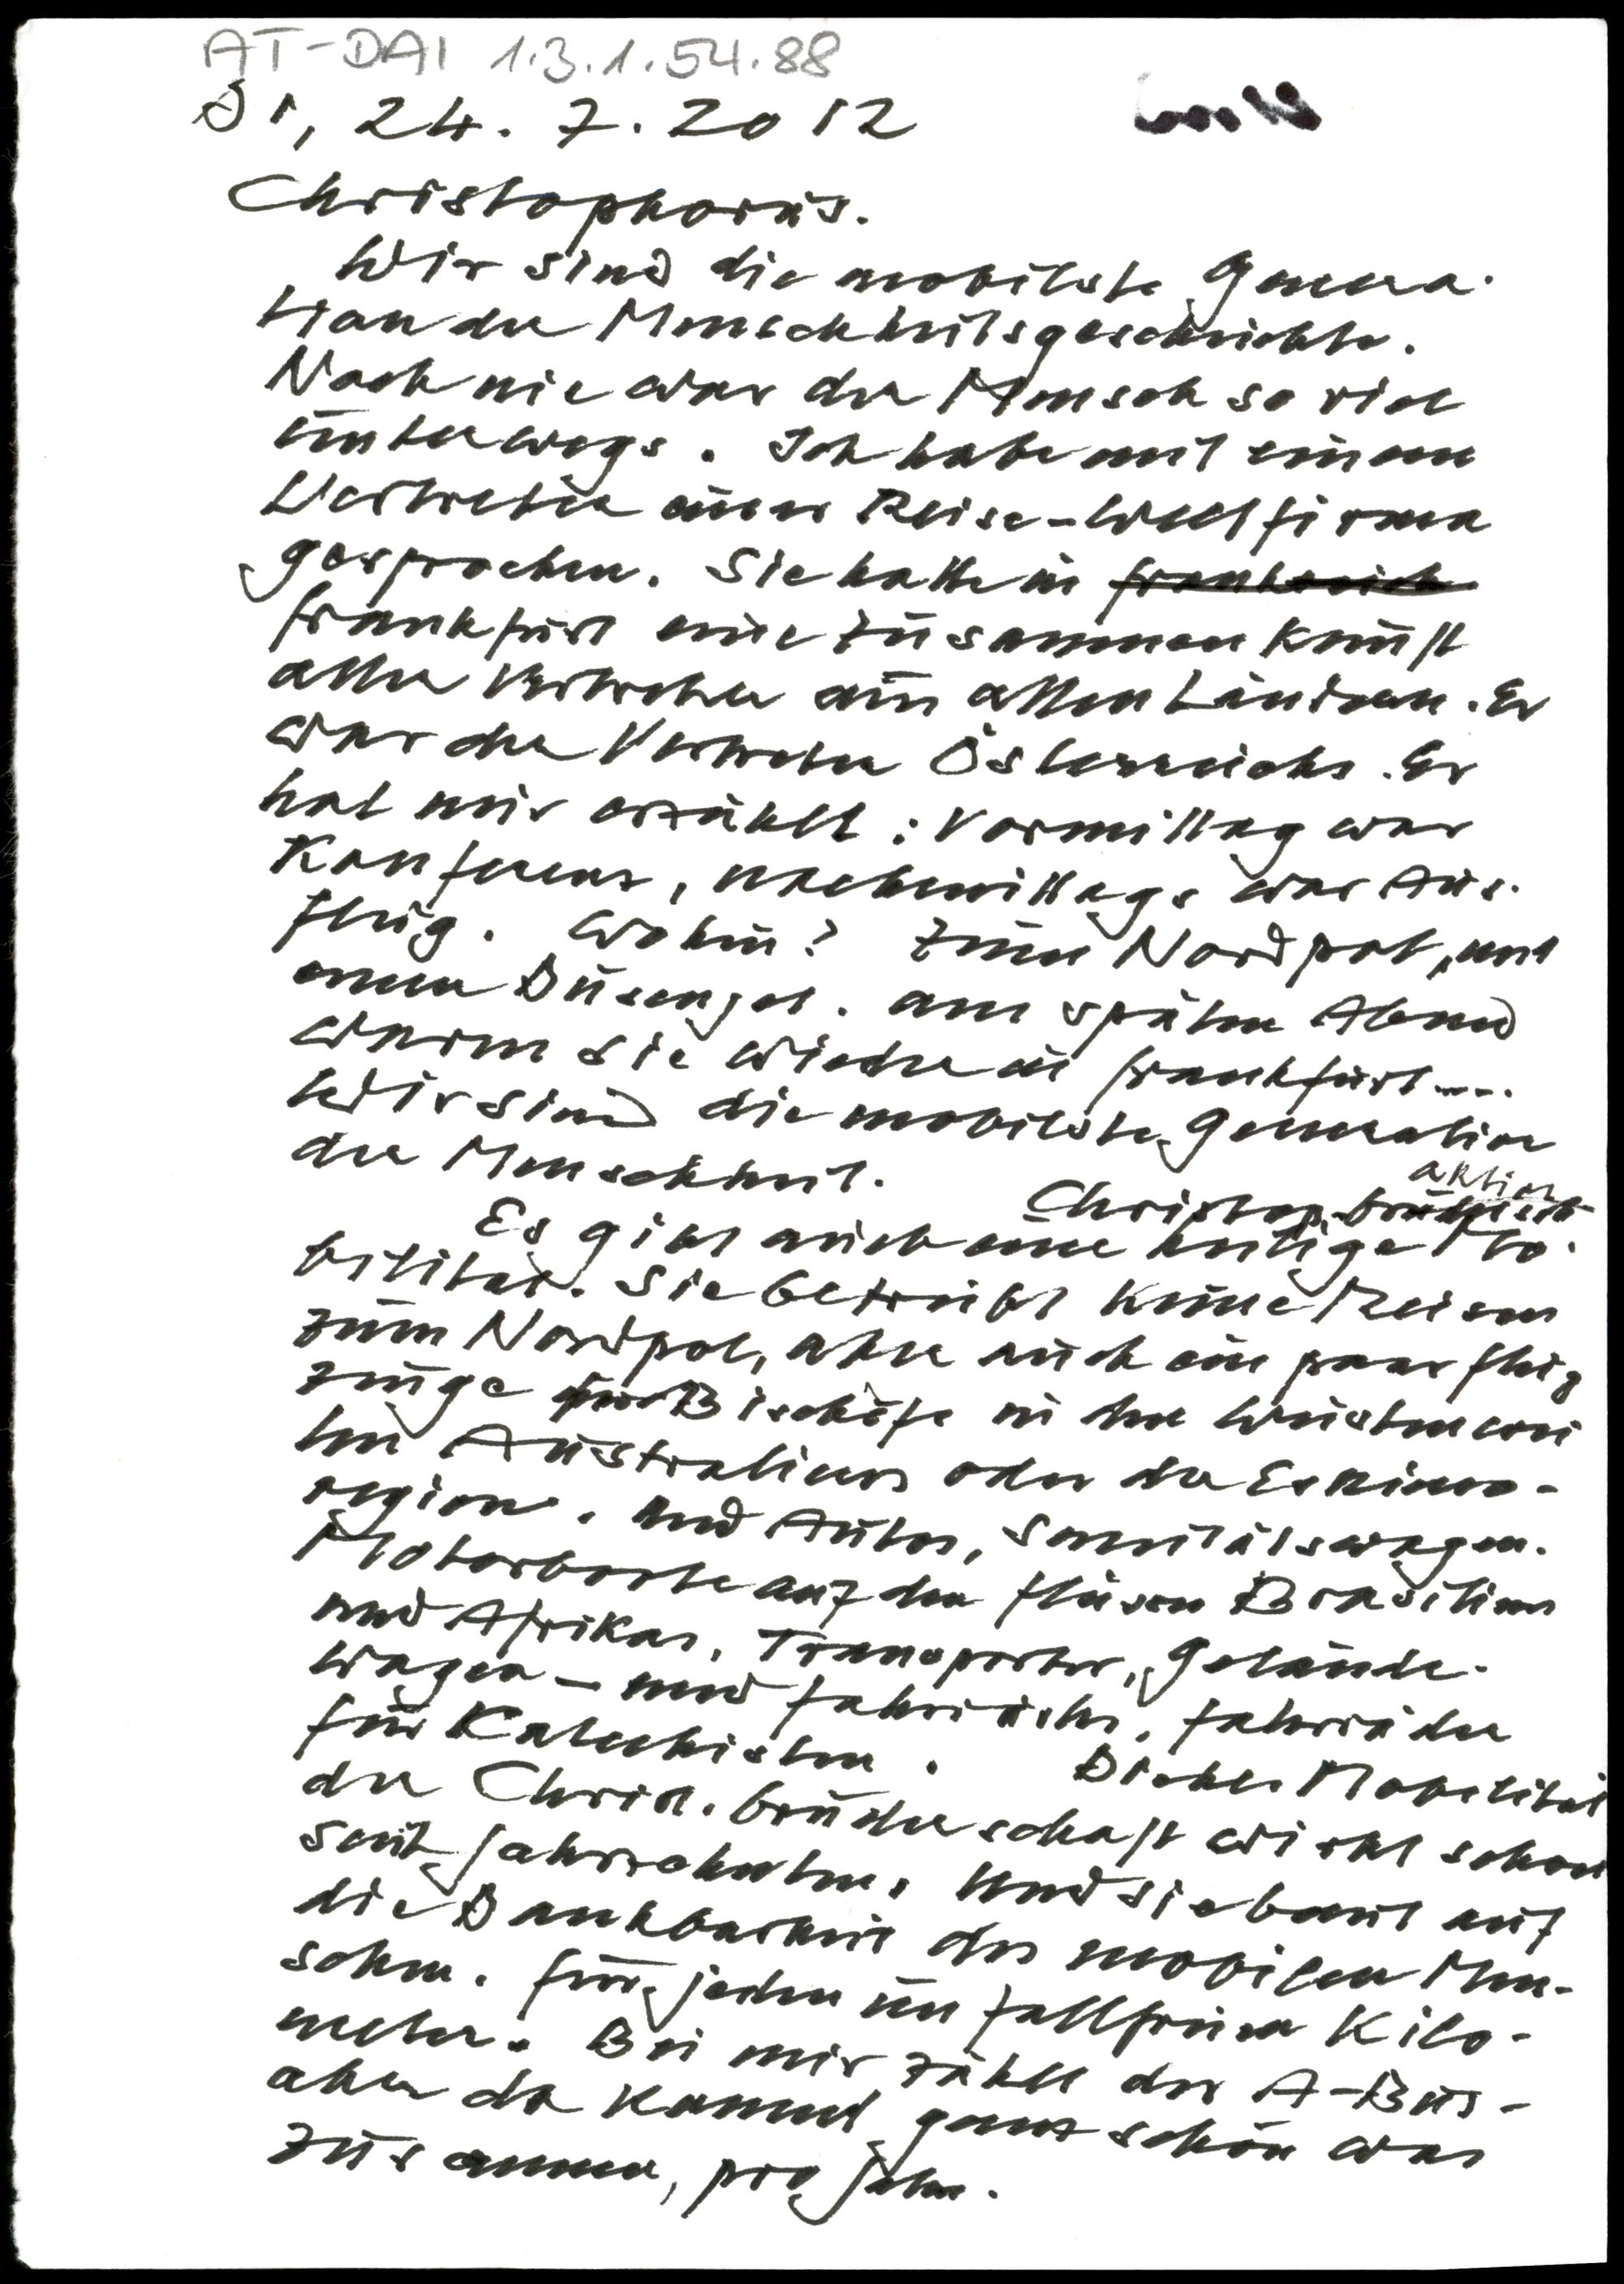 AT-DAI 1.3.1.54.88
Di, 24. 7. 2012
Christophorus.
Wir sind die mobilste Genera-
tion der Menschheitsgeschichte.
Noch nie war der Mensch so viel
unterwegs. Ich habe mit einem
Vertreter einer Reise-Weltfirma
gesprochen. Sie hatte in Frankreich
Frankfurt eine Zusammenkunft
aller Vertreter aus allen Ländern. Er
war der Vertreter Österreichs. Er
hat mir erzählt: Vormittag war
Konferenz, nachmittags war Aus-
flug. Wohin? Zum Nordpol, mit
einem Düsenjet. am späten Abend
waren sie wieder in Frankfurt....
Wir sind die mobilste Generation
der Menschheit.
aktion
Christoph.
Es gibt auch eine heilige Mo-
bilität. Sie betreibt keine Reisen
zum Nordpol, aber auch ein paar Flug
zeuge für Bischöfe in den Wüstenwei
ten Australiens oder der Eskimo-
region. und Autos, Sanitätswagen.
Motorboote auf den Flüssen Brasiliens
und Afrikas, Transporter, Gelände-
wagen - und Fahrräder, Fahrräder
für Katechisten. Mobilität
der Christ. bruderschaft wirkt schon
seit Jahrzehnten. Und sie baut auf
die Dankbarkeit des mobilen Men-
schen. Für jeden unfallfreien Kilo-
meter. Bei mir zählt der A-Bus-
aber da kommt ganz schön was
zusammen, pro Jahr.